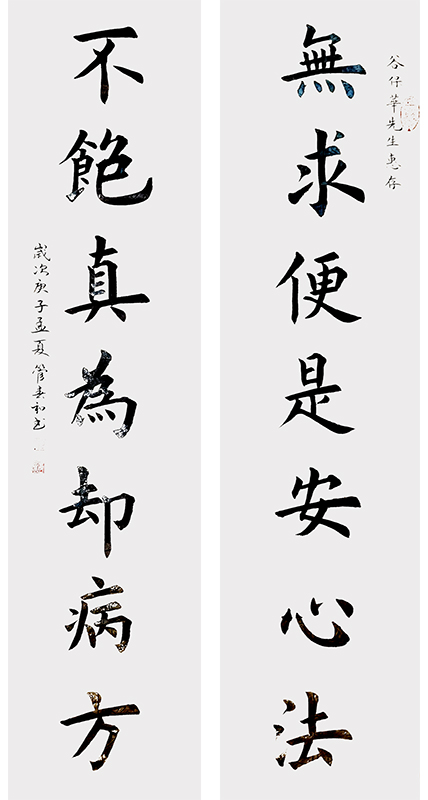 谷仔華先生惠存
無求便是安心法
不飽真為却病方
歲次庚子孟夏管春和書